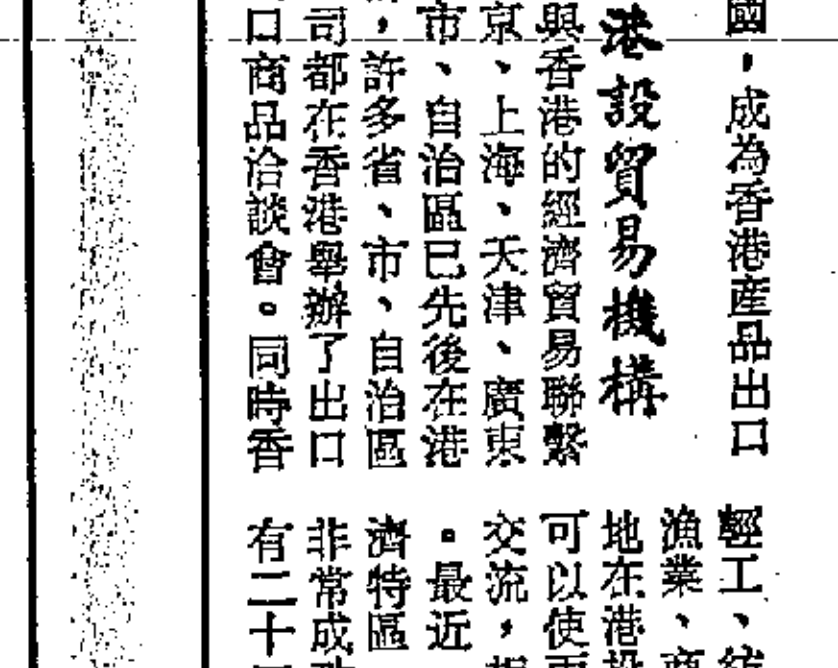 國，成為香港產品出口
港設貿易機構
與香港的經濟貿易聯繫
京、上海、天津、廣東
市、自治區已先後在港
，許多省、市、自治區
司都在香港舉辦了出口
口商品洽談會。同時香
輕工、紡
漁業、商
地在港投
可以使兩
交流，
。最近
濟特區
非常成功
有二十